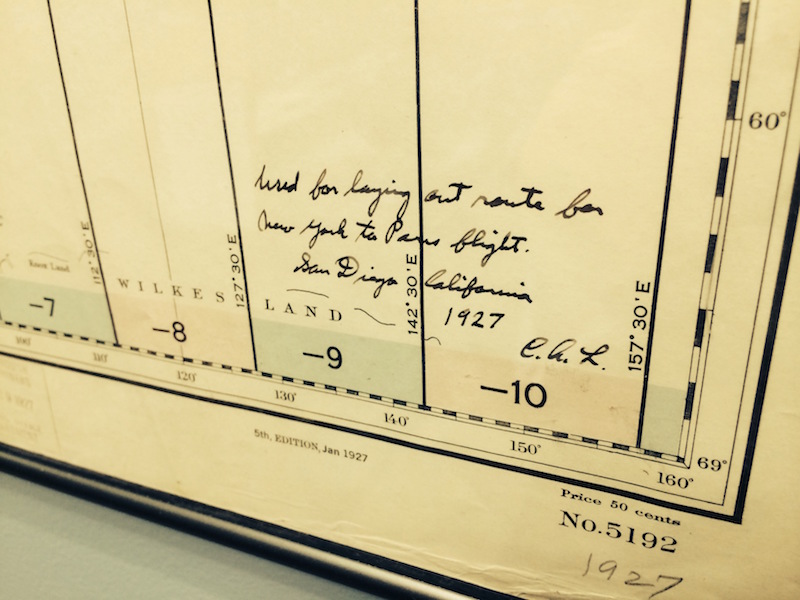 60°
Used for laying out route for
New York to Paris flight.
San Diego California
1927
C.A.L.
112°30'E
127°30'E
142°30'E
157°30'E
Knox Land
WILKES LAND
-7
-8
-9
-10
100°
110°
120°
130°
140°
150°
160°
69°
5th. EDITION, Jan 1927
Price 50 cents
No. 5192
1927